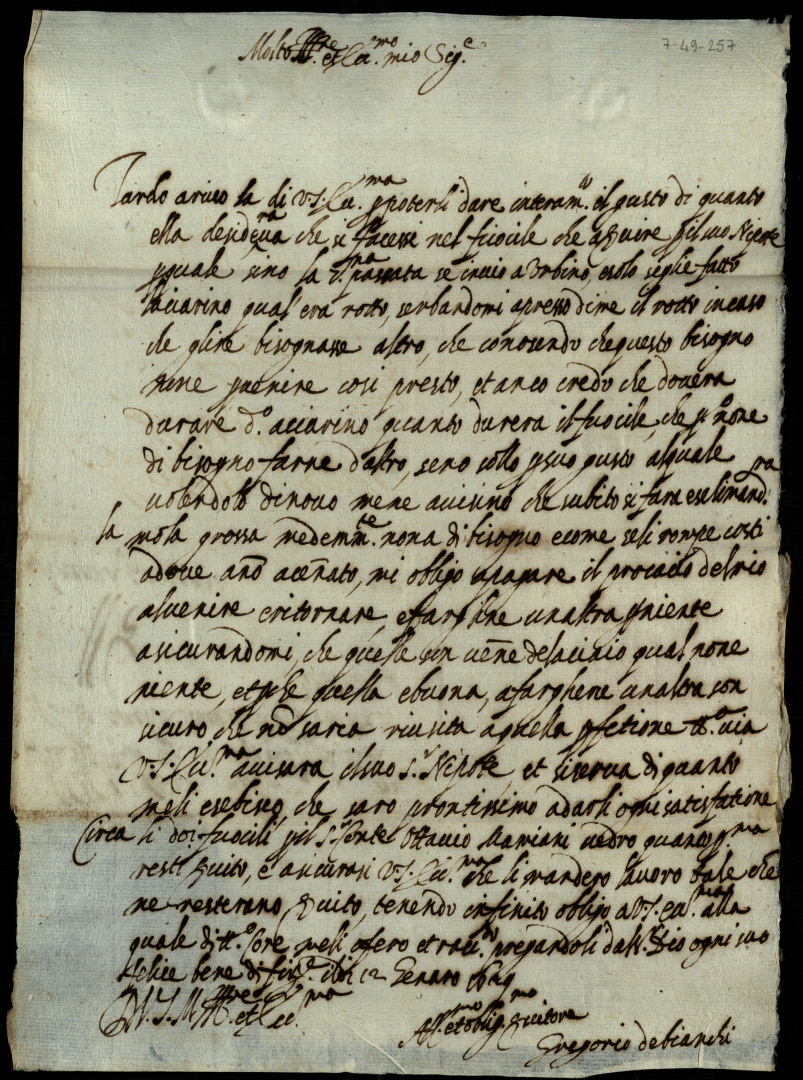 7-49-257
Molto Ill.re et Ecc.mo mio Sig.e
Tardo arivo la di V.S. Ecc.ma p poterli dare interam.te il gusto di quanto
ella desiderava che si facessi nel fucile che a p il suo Nipote
p quale sino la passata se invio a Urbino, e solo seglie fatto
laciarino qual era rotto, serbandomi apresso di me il rotto in caso
che gline bisognasse altro, che conosendo che questo bisogno
venire cosi presto, et anco credo che dovera
durare d.o aciarino quanto durera il fuocile, che none
di bisogno farne d'altro, seno sollo p suo gusto al quale
volendolo di novo mene avisino che subito si fara
la mola grossa medemm.te nona di bisogno e come seli rompe costi
adove ano acenato, mi obligo a pagare il
al venire e ritornare, e farghne un altra p niente
asicurandomi, che quelle un vene del aciaio qual none
niente, et p che quella e buona, a farghene un altra son
sicuro che no saria riusita a quella p fetione via
V.S. Ecc.ma avisara il suo S.r Nipote et si serva di quanto
meli esebisco, che saro prontissimo a darli ogni satisfatione
Circa li doi fuocili p il S.r Conte Ottavio Mamiani vedro quanto p.ma
resti servito, e asicurasi V.S. Ecc.ma che li mandero lavoro tale che
ne resterano servito, tenendo infinito obligo a V.S. Ecc.ma alla
quale di meli ofero et racc.do pregandoli dal S.r Dio ogni suo
felice bene di li 12 Genaro
D.V.S. M. Ill.re et Ecc.ma
Af.mo et oblig.mo Servitore
Gregorio de bianchi